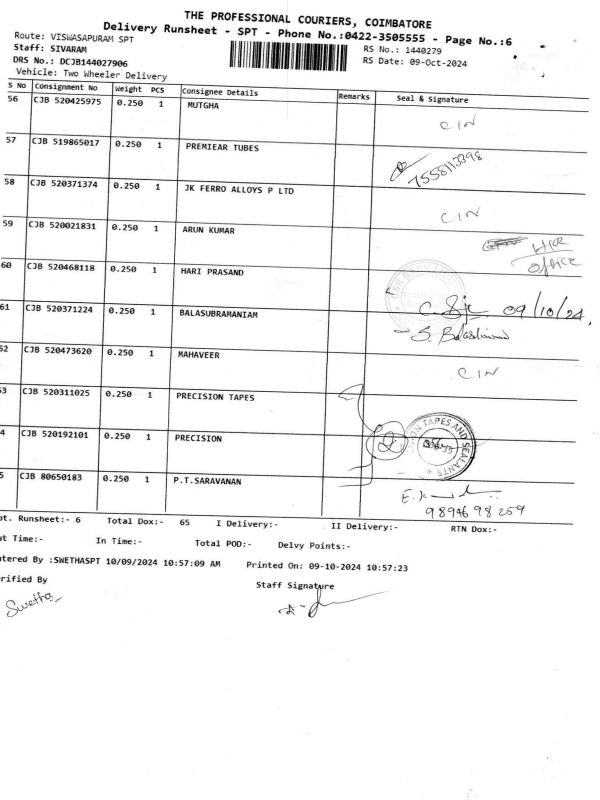 THE PROFESSIONAL COURIERS, COIMBATORE
Delivery Runsheet - SPT - Phone No.:0422-3505555 - Page No.:6
Route: VISWASAPURAM SPT
Staff: SIVARAM
RS No.: 1440279
DRS No.: DCJB144027906
RS Date: 09-Oct-2024
Vehicle: Two Wheeler Delivery
S No Consignment No Weight PCS Consignee Details Remarks Seal & Signature
56 CJB 520425975 0.250 1 MUTGHA CIN
57 CJB 519865017 0.250 1 PREMIEAR TUBES 7558113398
58 CJB 520371374 0.250 1 JK FERRO ALLOYS P LTD CIN
59 CJB 520021831 0.250 1 ARUN KUMAR OFFICE
60 CJB 520468118 0.250 1 HARI PRASAND 09/10/24
61 CJB 520371224 0.250 1 BALASUBRAMANIAM
52 CJB 520473620 0.250 1 MAHAVEER CIN
53 CJB 520311025 0.250 1 PRECISION TAPES
4 CJB 520192101 0.250 1 PRECISION TAPES AND SEALANTS
5 CJB 80650183 0.250 1 P.T.SARAVANAN
9894698259
ot. Runsheet:- 6 Total Dox:- 65 I Delivery:- II Delivery:- RTN Dox:-
ut Time:- In Time:- Total POD:- Delvy Points:-
ntered By :SWETHASPT 10/09/2024 10:57:09 AM Printed On: 09-10-2024 10:57:23
rified By Staff Signature
Swetha